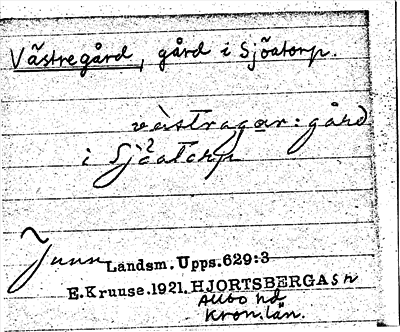 Västregård, gård i Sjöatorp.
västragar : gård
i Sjöatorp
Landsm. Upps. 629:3
E. Kruuse. 1921. HJORTSBERGA sn
Allbo hd.
Kron. län.